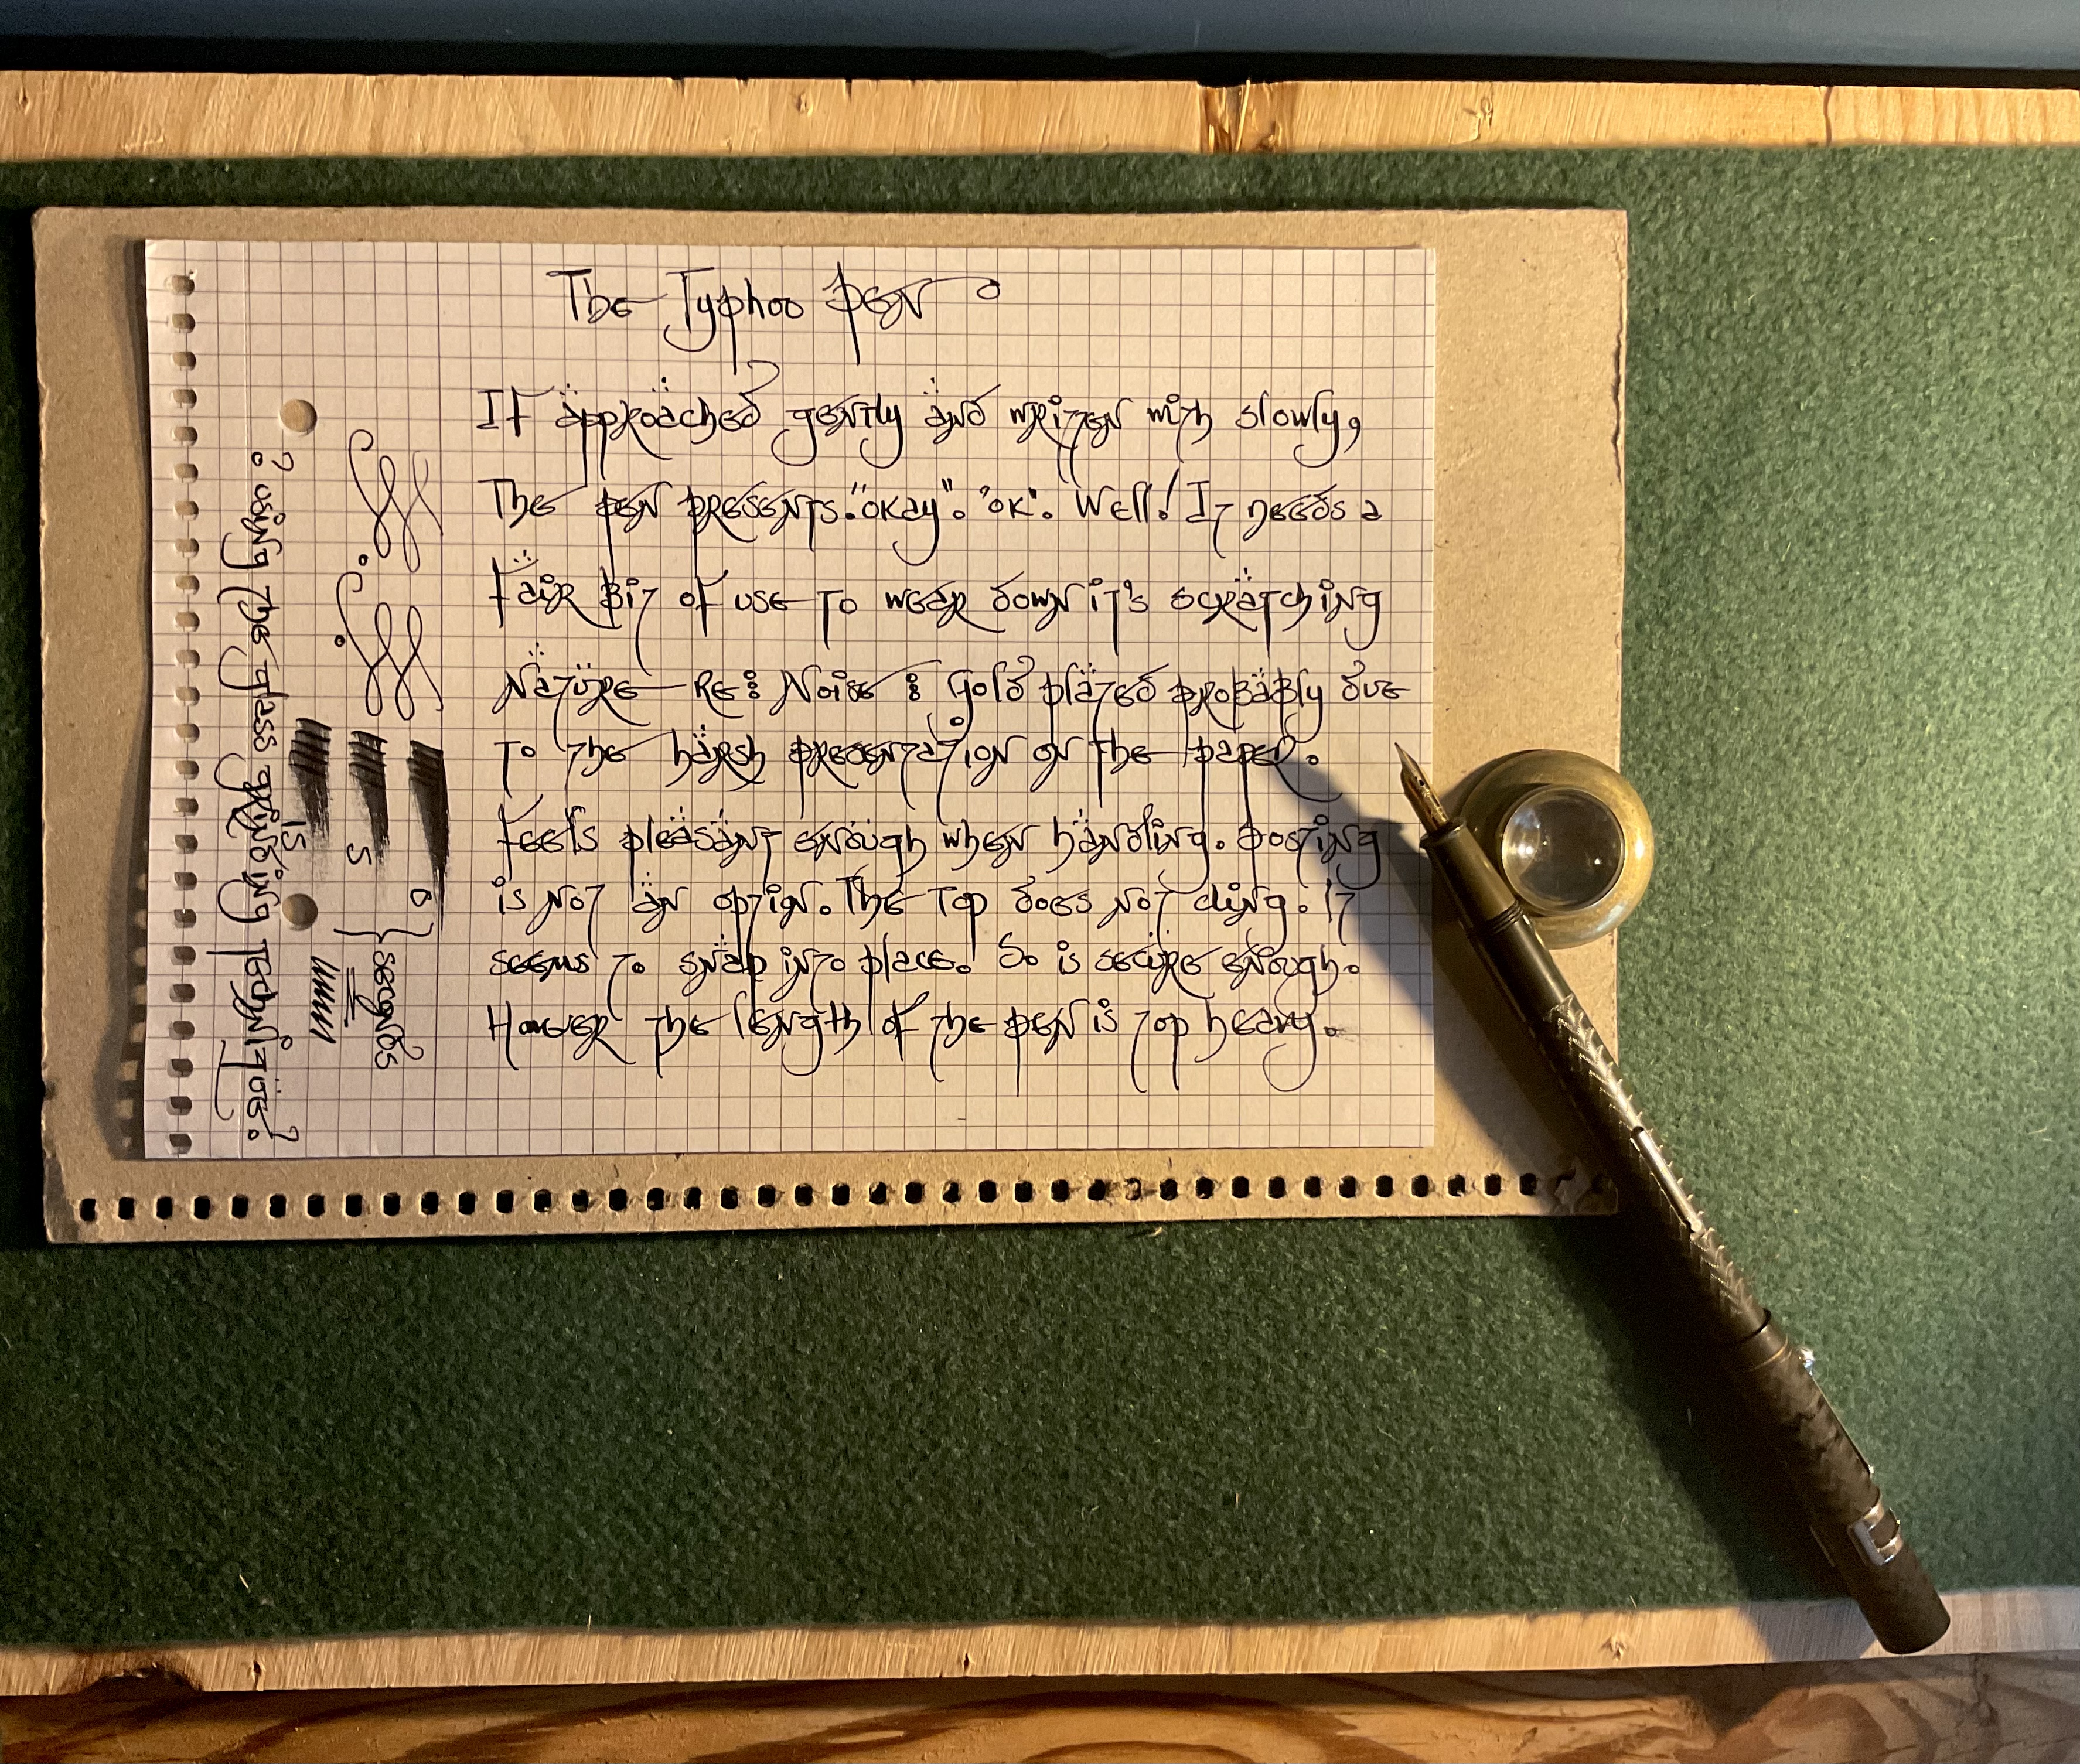 The Typhoo Pen
If approached gently and writen with slowly,
The pen presents. "okay". "ok". Well! It needs a
fair bit of use to wear down it's scratching
Nature - Re: Noise: Gold plated probably due
to the harsh presentation on the paper.
feels pleasant enough when handling. posting
is not an optin. The top does not cling. It
seems to snap into place. So is secure enough.
However the length of the pen is top heavy.
? using the glass grinding technique. ?
15
5
0
seconds